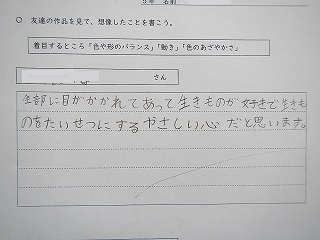 5年 名前
○ 友達の作品を見て、想像したことを書こう。
着目するところ「色や形のバランス」「動き」「色のあざやかさ」
さん
全部に目がかかれてあって生きものが好きで生きも
のをたいせつにするやさしい心だと思います。